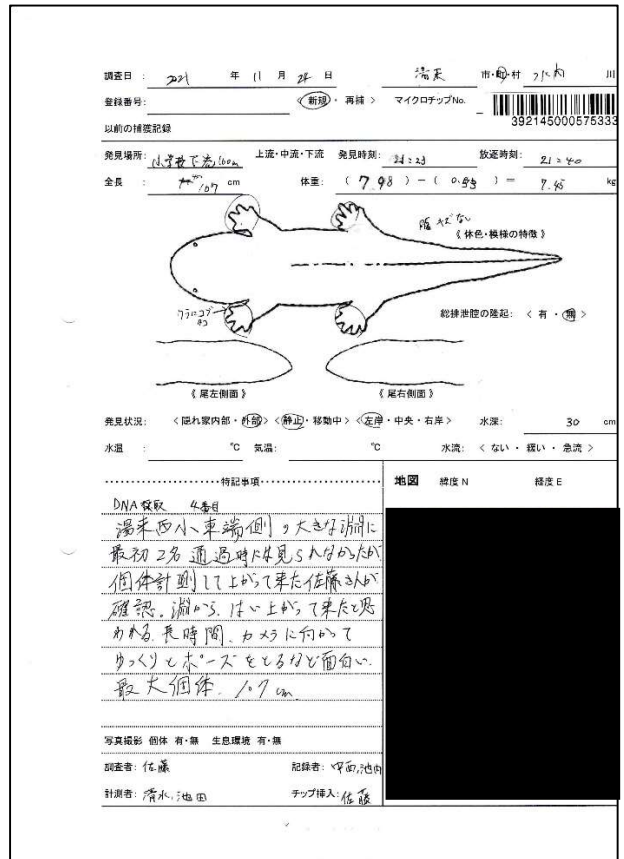 調査日 : 2021 年 11 月 24 日 湯来 市・町・村 川
登録番号: < 新規 ・ 再捕 > マイクロチップNo. 392145000575333
以前の捕獲記録
発見場所: 小学校下流160m 上流・中流・下流 発見時刻: 21:23 放逐時刻: 21:40
全長 : 107 cm 体重: ( 7.98 ) − ( 0.53 ) = 7.45 kg
腹 キズない
《 体色・模様の特徴 》
総排泄腔の隆起: < 有 ・ 無 >
《 尾左側面 》 《 尾右側面 》
発見状況: < 隠れ家内部・外部 > < 静止・移動中 > < 左岸・中央・右岸 > 水深: 30 cm
水温 : ℃ 気温: ℃ 水流: < ない ・ 緩い ・ 急流 >
特記事項 地図 緯度 N 経度 E
DNA採取 4番目
湯来西小、東端側の大きな淵に
最初2名通過時には見られなかったが
個体計測して上がって来た佐藤さんが
確認。淵から、はい上がって来たと思
われる。長時間、カメラに向かって
ゆっくりとポーズをとるなど面白い。
最大個体。107cm
写真撮影 個体 有・無 生息環境 有・無
調査者: 佐藤 記録者: 池内
計測者: 清水, 池田 チップ挿入: 佐藤